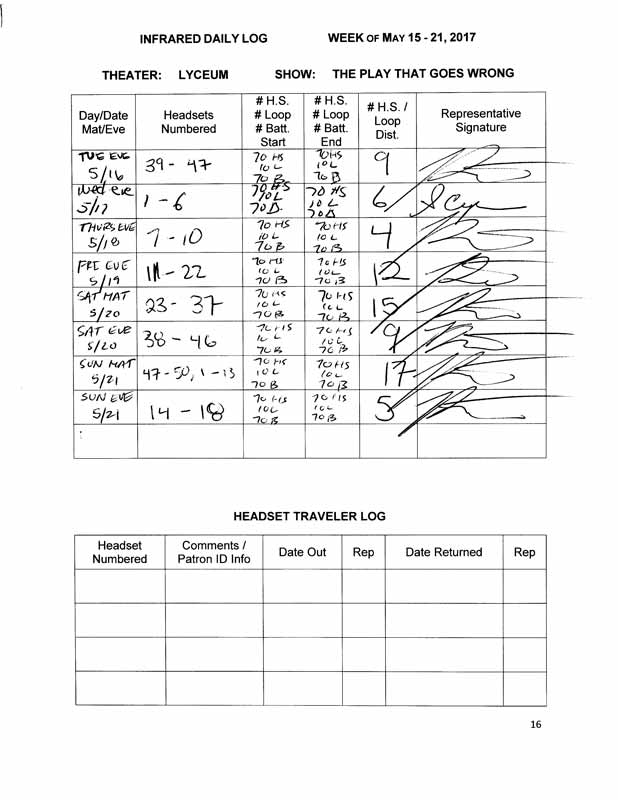 INFRARED DAILY LOG WEEK OF MAY 15 - 21, 2017
THEATER: LYCEUM SHOW: THE PLAY THAT GOES WRONG
Day/Date Mat/Eve Headsets Numbered # H.S. # Loop # Batt. Start # H.S. # Loop # Batt. End # H.S. / Loop Dist. Representative Signature
TUE EVE 5/16 39 - 47 70 HS 10 L 70 B 70 HS 10 L 70 B 9
Wed eve 5/17 1 - 6 70 HS 10 L 70 B 70 HS 10 L 70 B 6
THURS EVE 5/18 7 - 10 70 HS 10 L 70 B 70 HS 10 L 70 B 4
FRI EVE 5/19 11 - 22 70 HS 10 L 70 B 70 HS 10 L 70 B 12
SAT MAT 5/20 23 - 37 70 HS 10 L 70 B 70 HS 10 L 70 B 15
SAT EVE 5/20 38 - 46 70 HS 10 L 70 B 70 HS 10 L 70 B 9
SUN MAT 5/21 47 - 50, 1 - 13 70 HS 10 L 70 B 70 HS 10 L 70 B 17
SUN EVE 5/21 14 - 18 70 HS 10 L 70 B 70 HS 10 L 70 B 5
:
HEADSET TRAVELER LOG
Headset Numbered Comments / Patron ID Info Date Out Rep Date Returned Rep
16